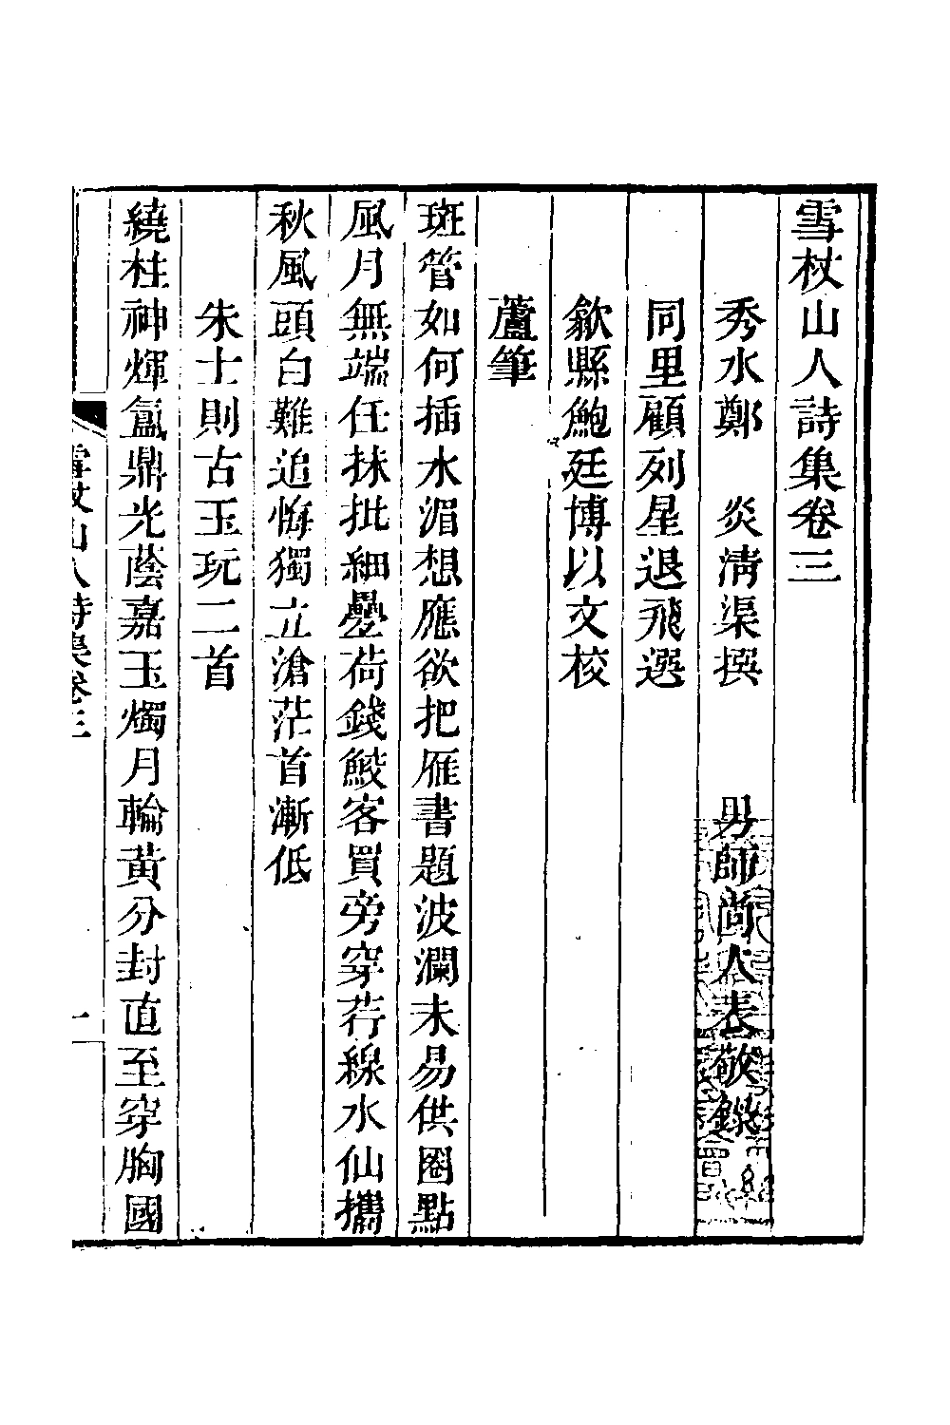 雪杖山人詩集卷三
秀水鄭　炎淸渠撰　男師尚人表敬錄
同里顧列星退飛選
歙縣鮑廷博以文校
蘆筆
斑管如何插水湄想應欲把雁書題波瀾未易供圈點
風月無端任抹批細疊荷錢鮫客買旁穿荇線水仙攜
秋風頭白難追悔獨立滄茫首漸低
朱士則古玉玩二首
繞柱神輝氳鼎光蔭嘉玉燭月輪黃分封直至穿胸國
雪杖山人詩集卷三
一